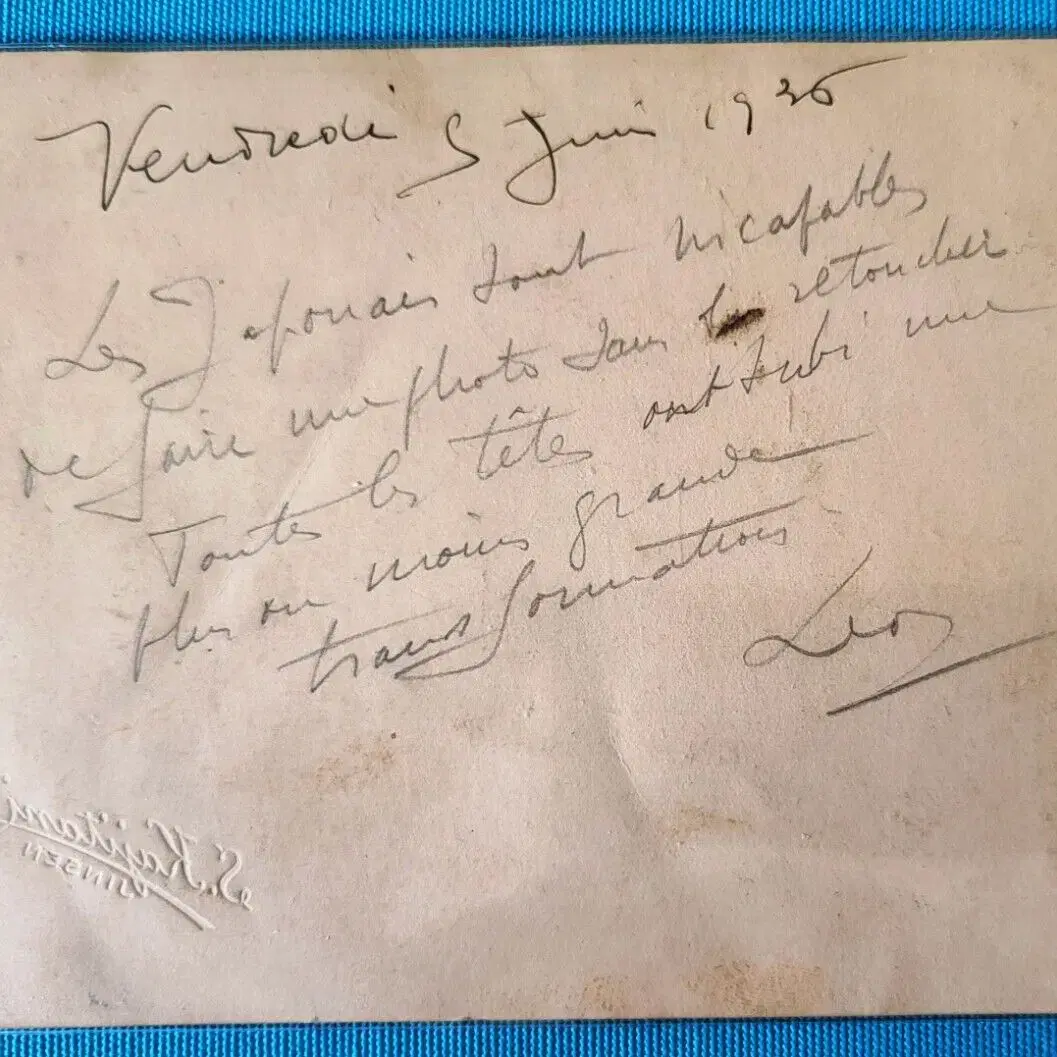 Vendredi 5 Juin 1936
Les Japonais sont incapables
de faire une photo sans la retoucher
Toutes les têtes ont subi une
plus ou moins grande
transformation
Leo
S. Kajitani
JINSEN